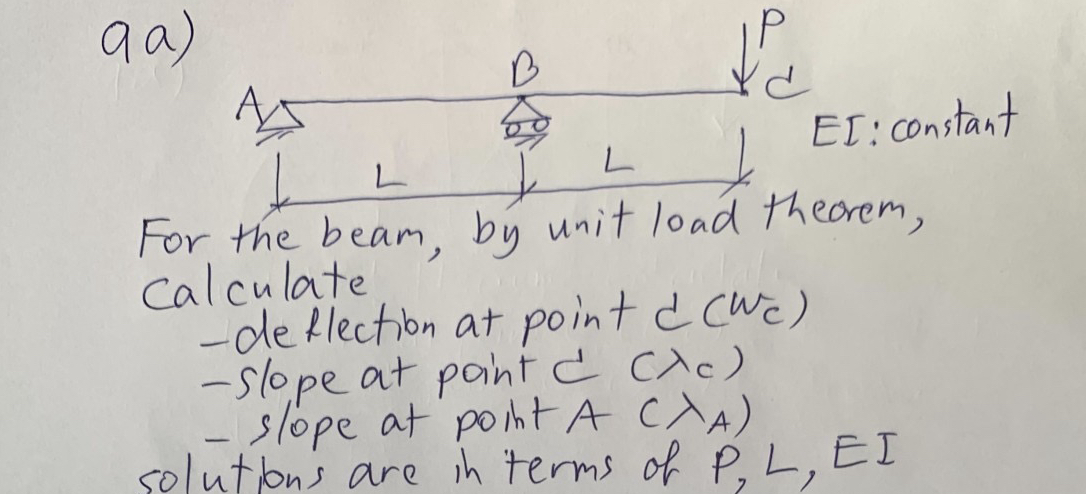 9a)
P
B
A
C
EI: constant
L
L
For the beam, by unit load theorem,
calculate
- deflection at point C (WC)
- slope at point C (λC)
- slope at point A (λA)
solutions are in terms of P, L, EI